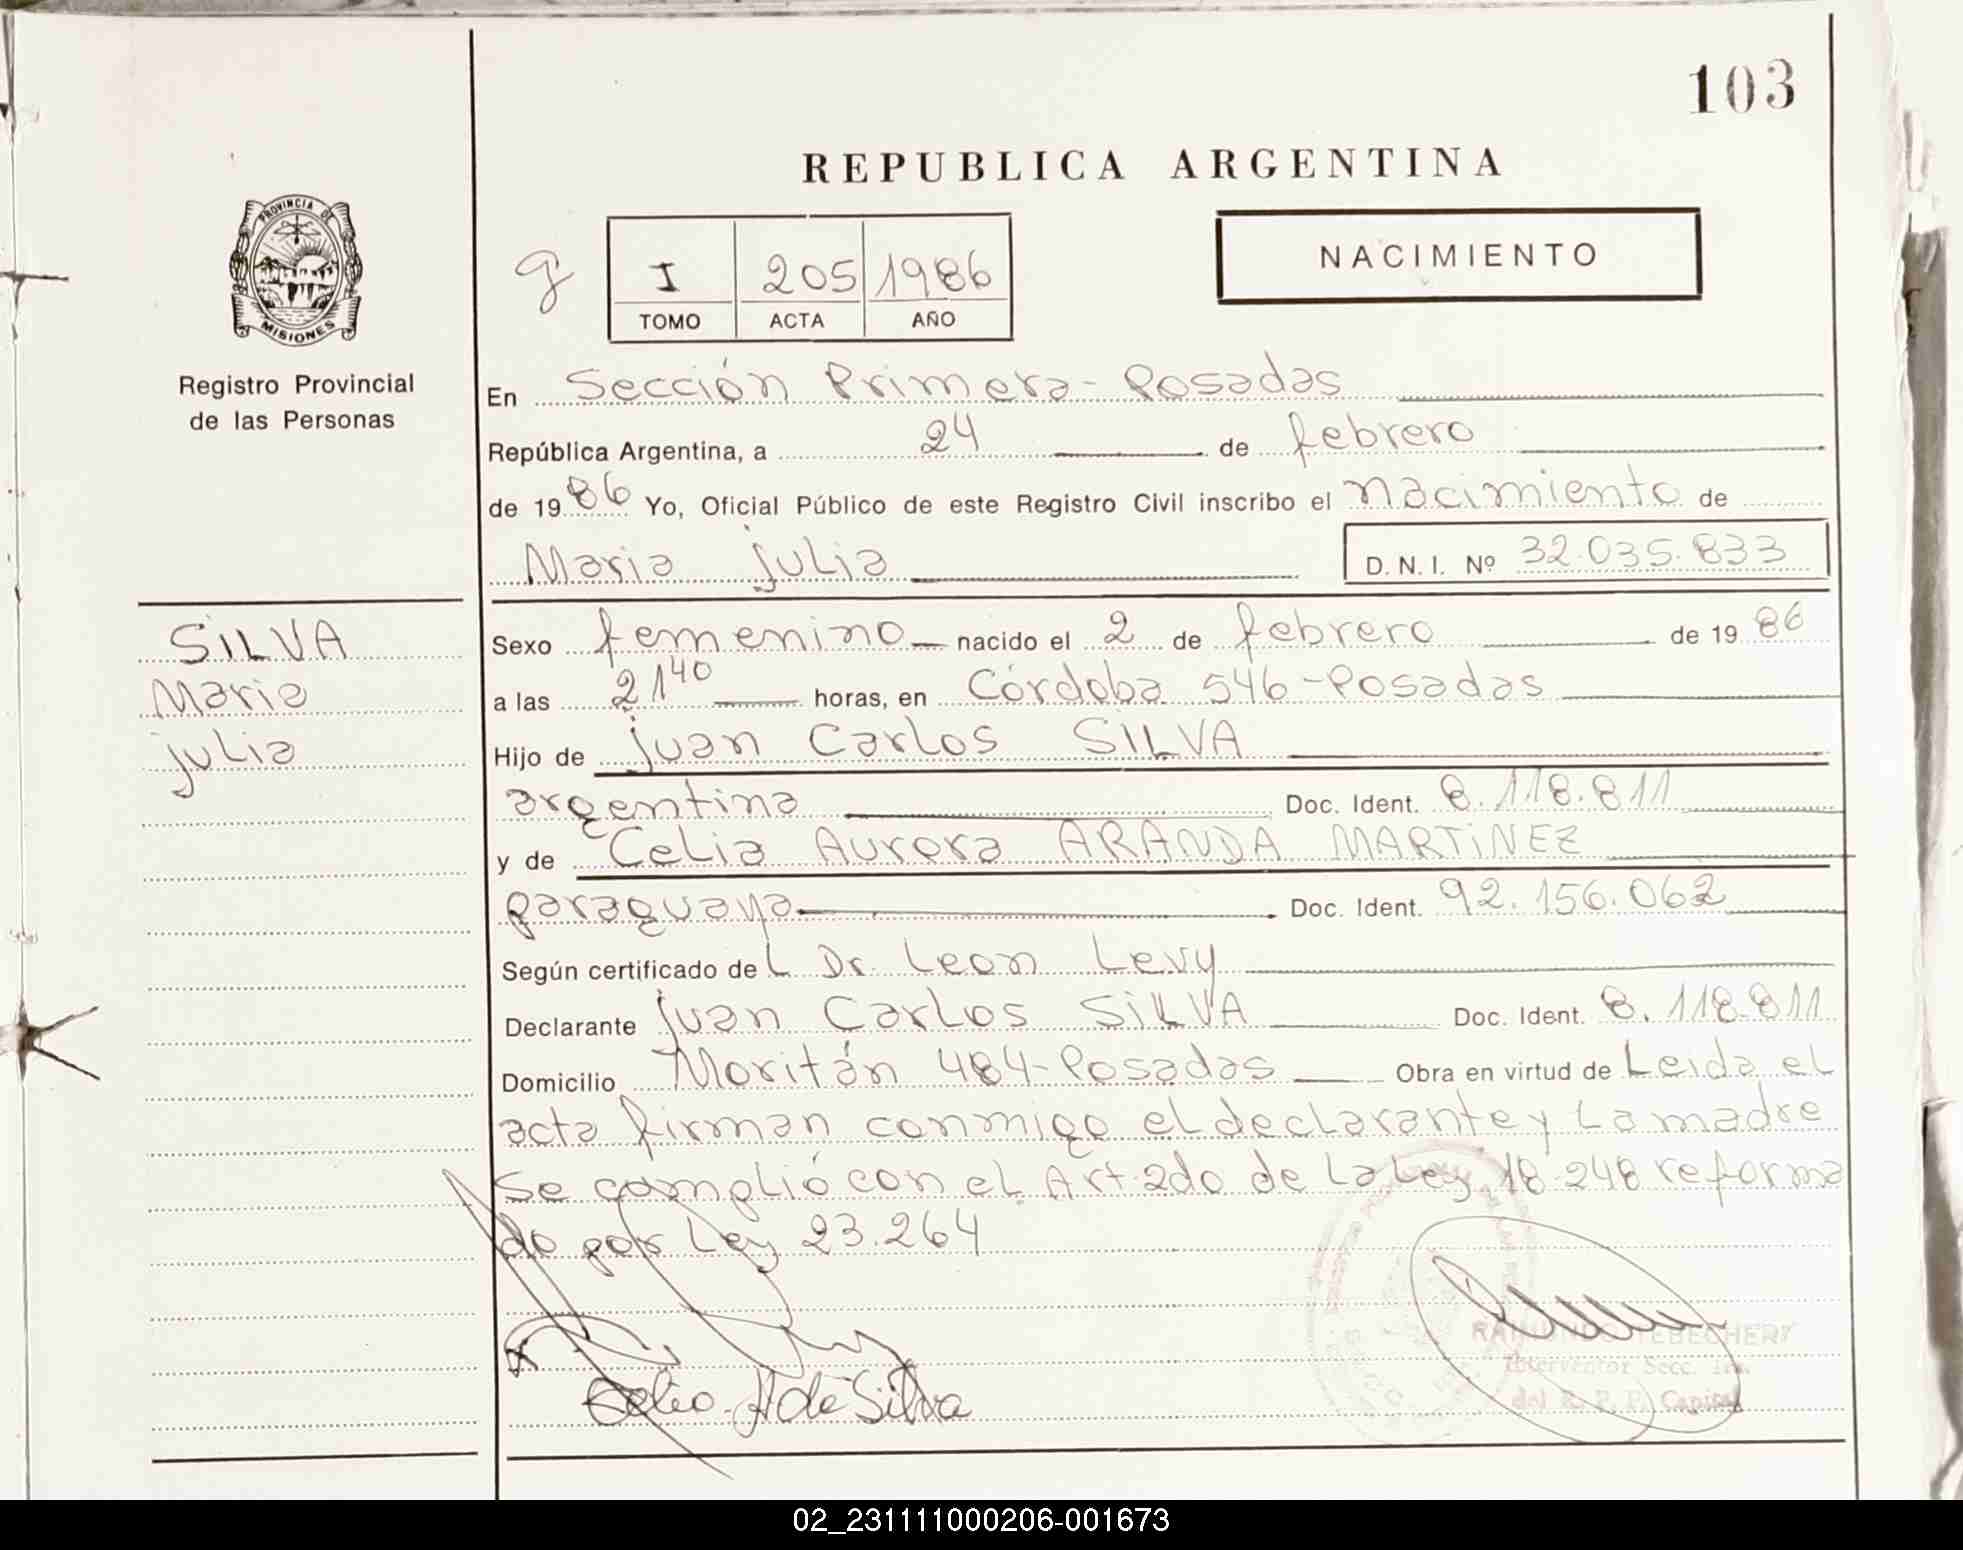 103
REPUBLICA ARGENTINA
PROVINCIA DE
MISIONES
Registro Provincial
de las Personas
I 205 1986
TOMO ACTA AÑO
NACIMIENTO
En Sección Primera-Posadas
República Argentina, a 24 de febrero
de 1986 Yo, Oficial Público de este Registro Civil inscribo el nacimiento de
Maria julia D.N.I. Nº 32.035.833
SILVA
Maria
julia
Sexo femenino nacido el 2 de febrero de 1986
a las 21 40 horas, en Córdoba 546-Posadas
Hijo de juan Carlos SILVA
argentina Doc. Ident. 8.118.811
y de Celia Aurora ARANDA MARTiNEZ
paraguaya Doc. Ident. 92.156.062
Según certificado deL Dr. Leon Levy
Declarante juan Carlos SiLVA Doc. Ident. 8.118.811
Domicilio Moritán 484-Posadas Obra en virtud de Leida el
acta firman conmigo el declarante y La madre
Se complió con el Art 2do de La Ley 18.248 reforma
do por Ley 23.264
Celia A de Silva
Interventor Secc. 1ra.
del R. P. P. Capital
02_231111000206-001673